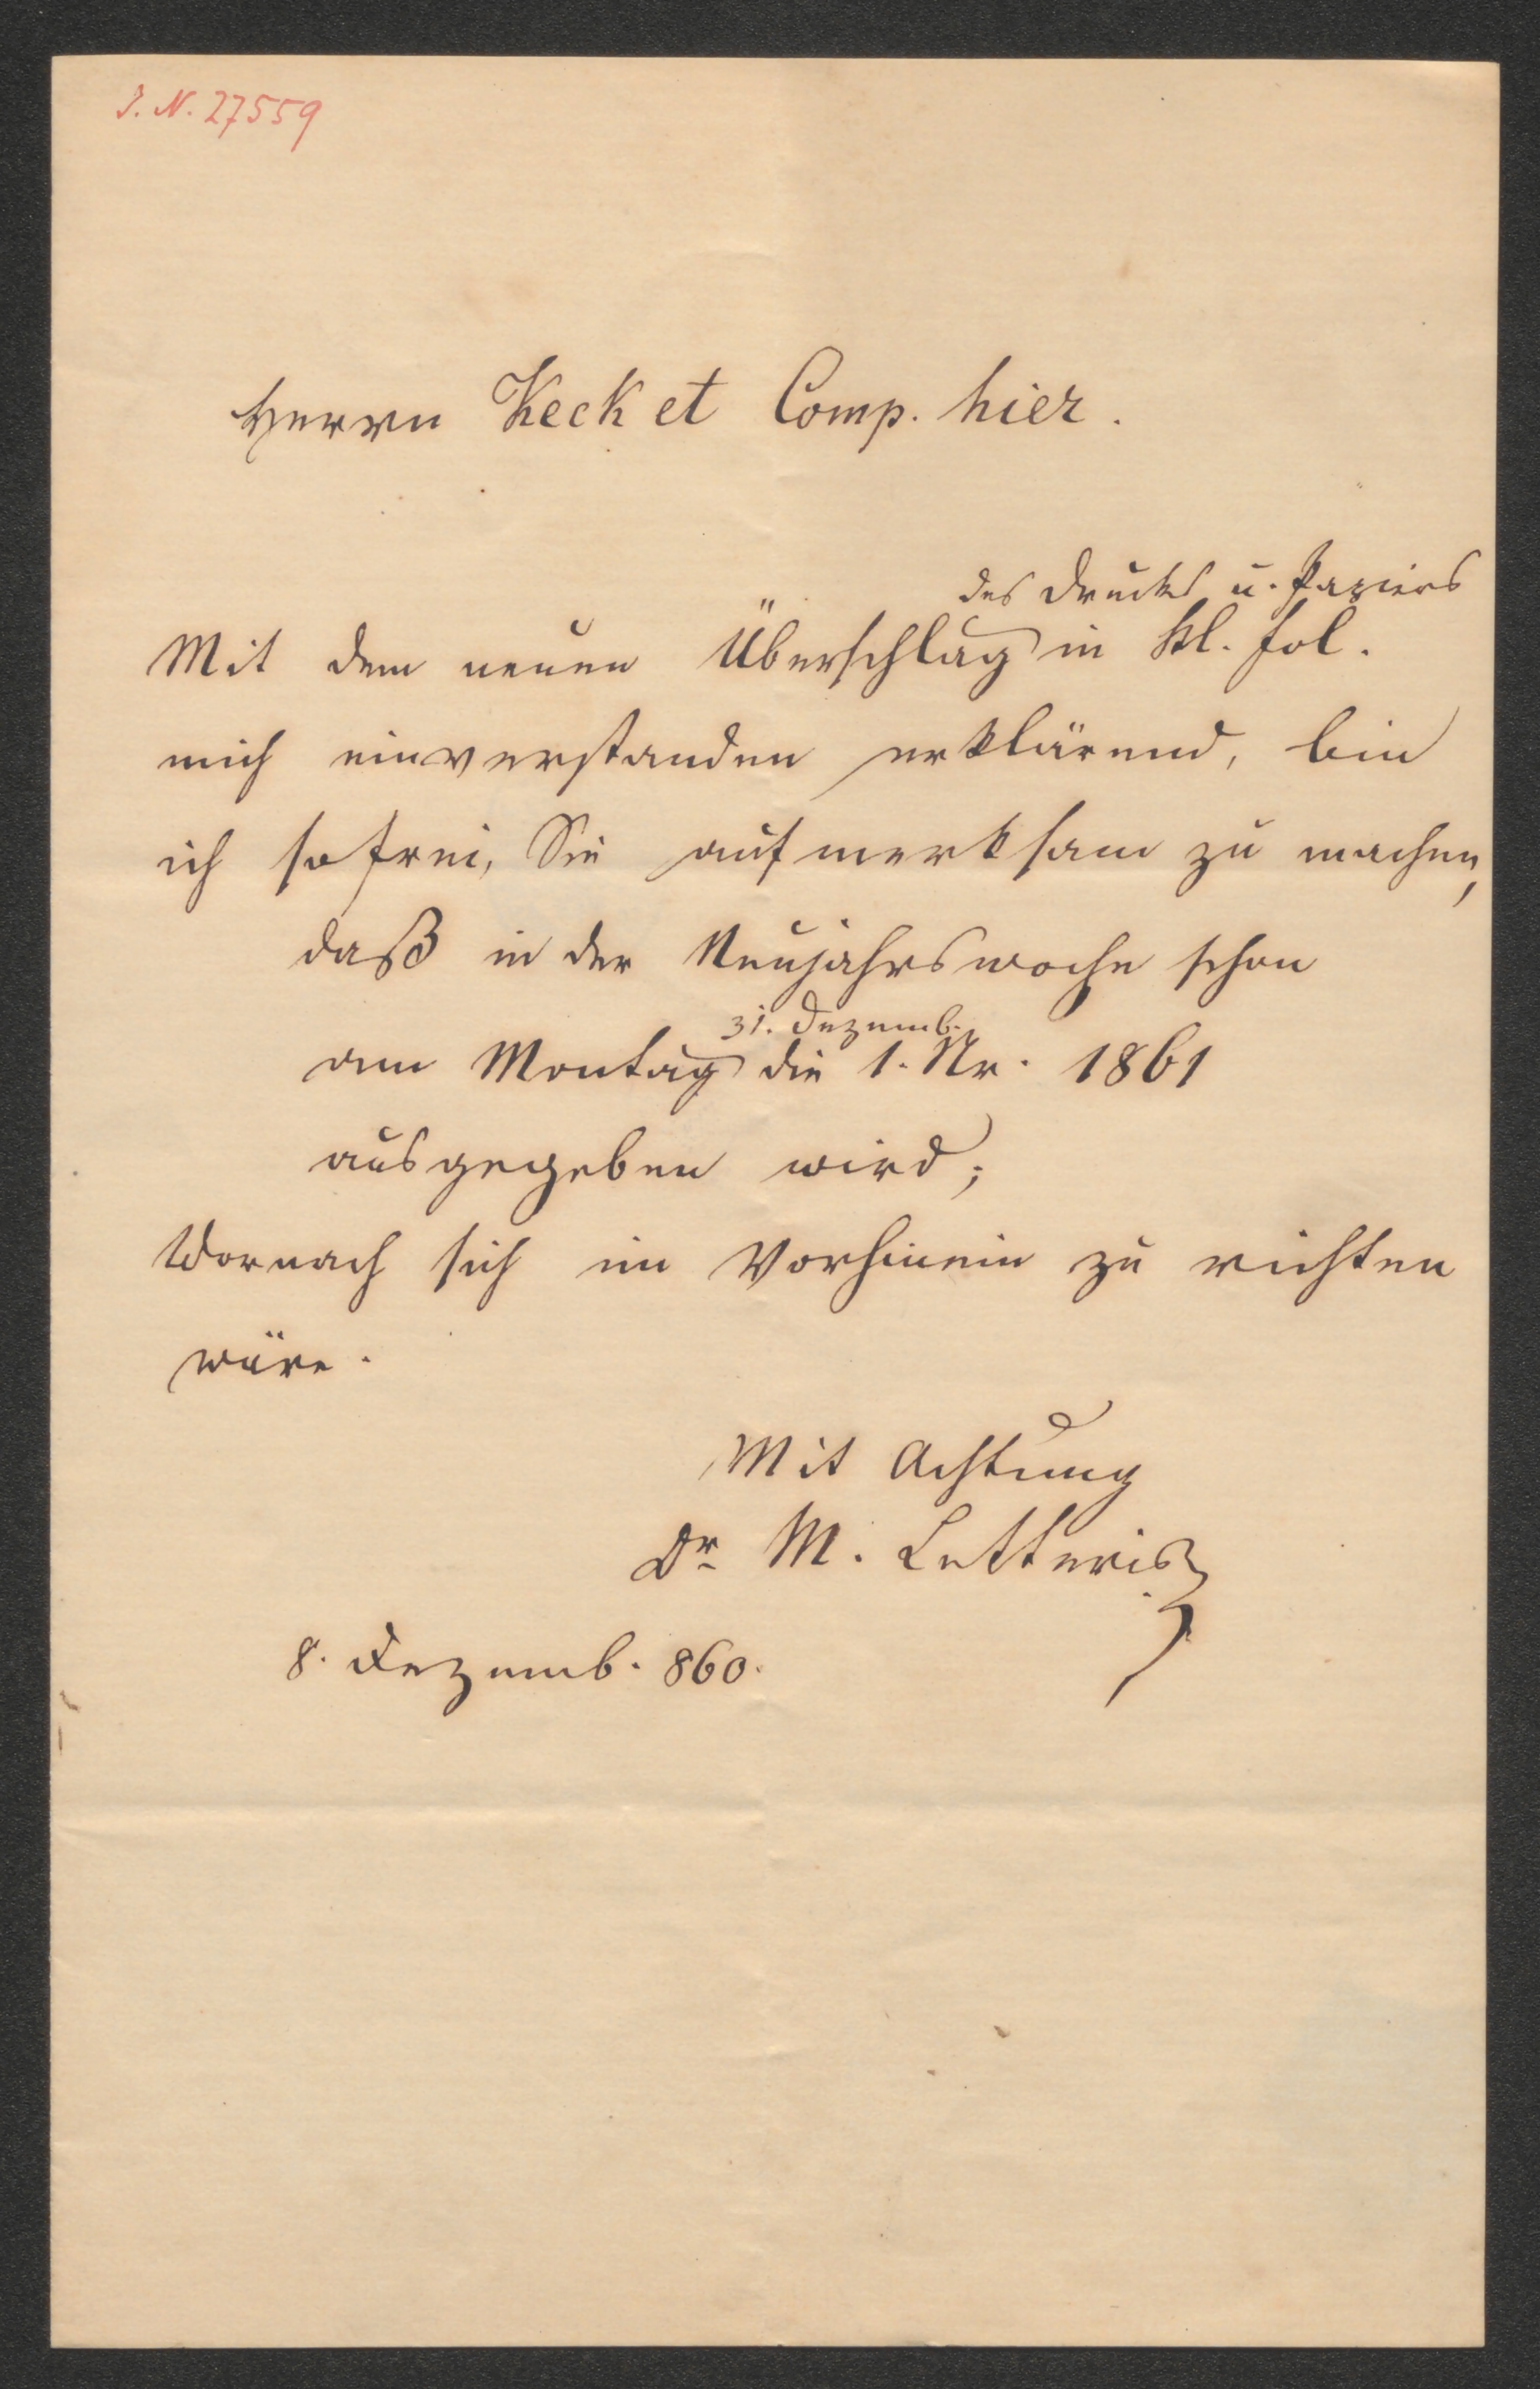 J. N. 27559
Herrn Keck et Comp. hier.
des Drucks u. Papiers
Mit dem neuen Überschlag in kl. fol.
mich einverstanden erklärend, bin
ich so frei, Sie aufmerksam zu machen,
daß in der Neujahrswoche schon
31. Dezemb.
am Montag die 1. Nr. 1861
ausgegeben wird;
Wornach sich im Vorhinein zu richten
wäre.
Mit Achtung
Dr M. Letteris
8. Dezemb. 860.